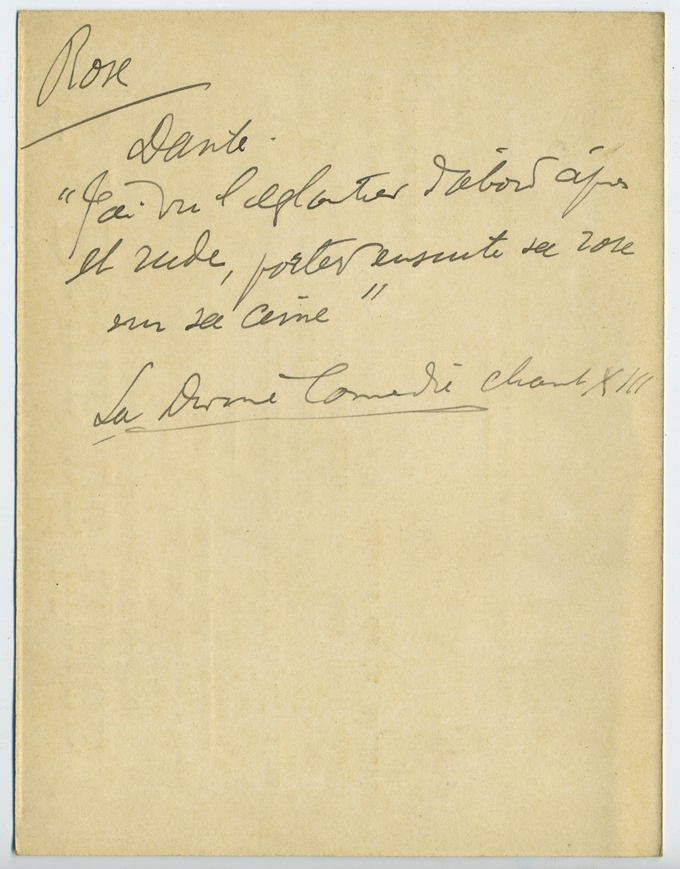 Rose
Dante.
"J'ai vu l'eglantier d'abord âpre
et rude, porter ensuite sa rose
sur sa cime"
La Divine Comedie chant XIII